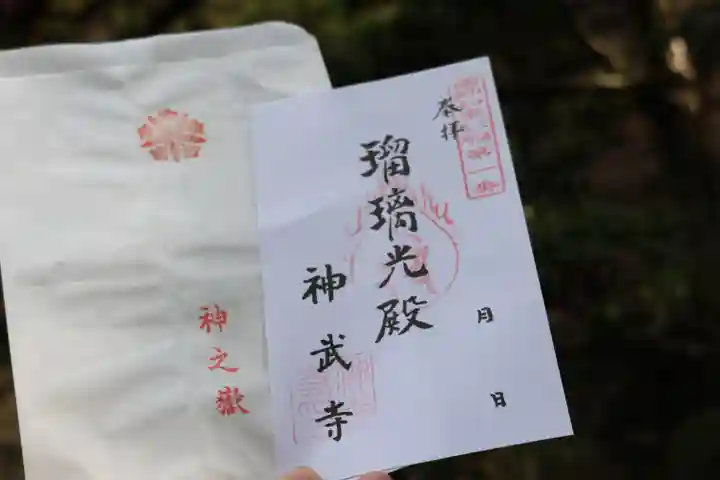 奉拝
瑠璃光殿
神武寺
月
日
神之嶽